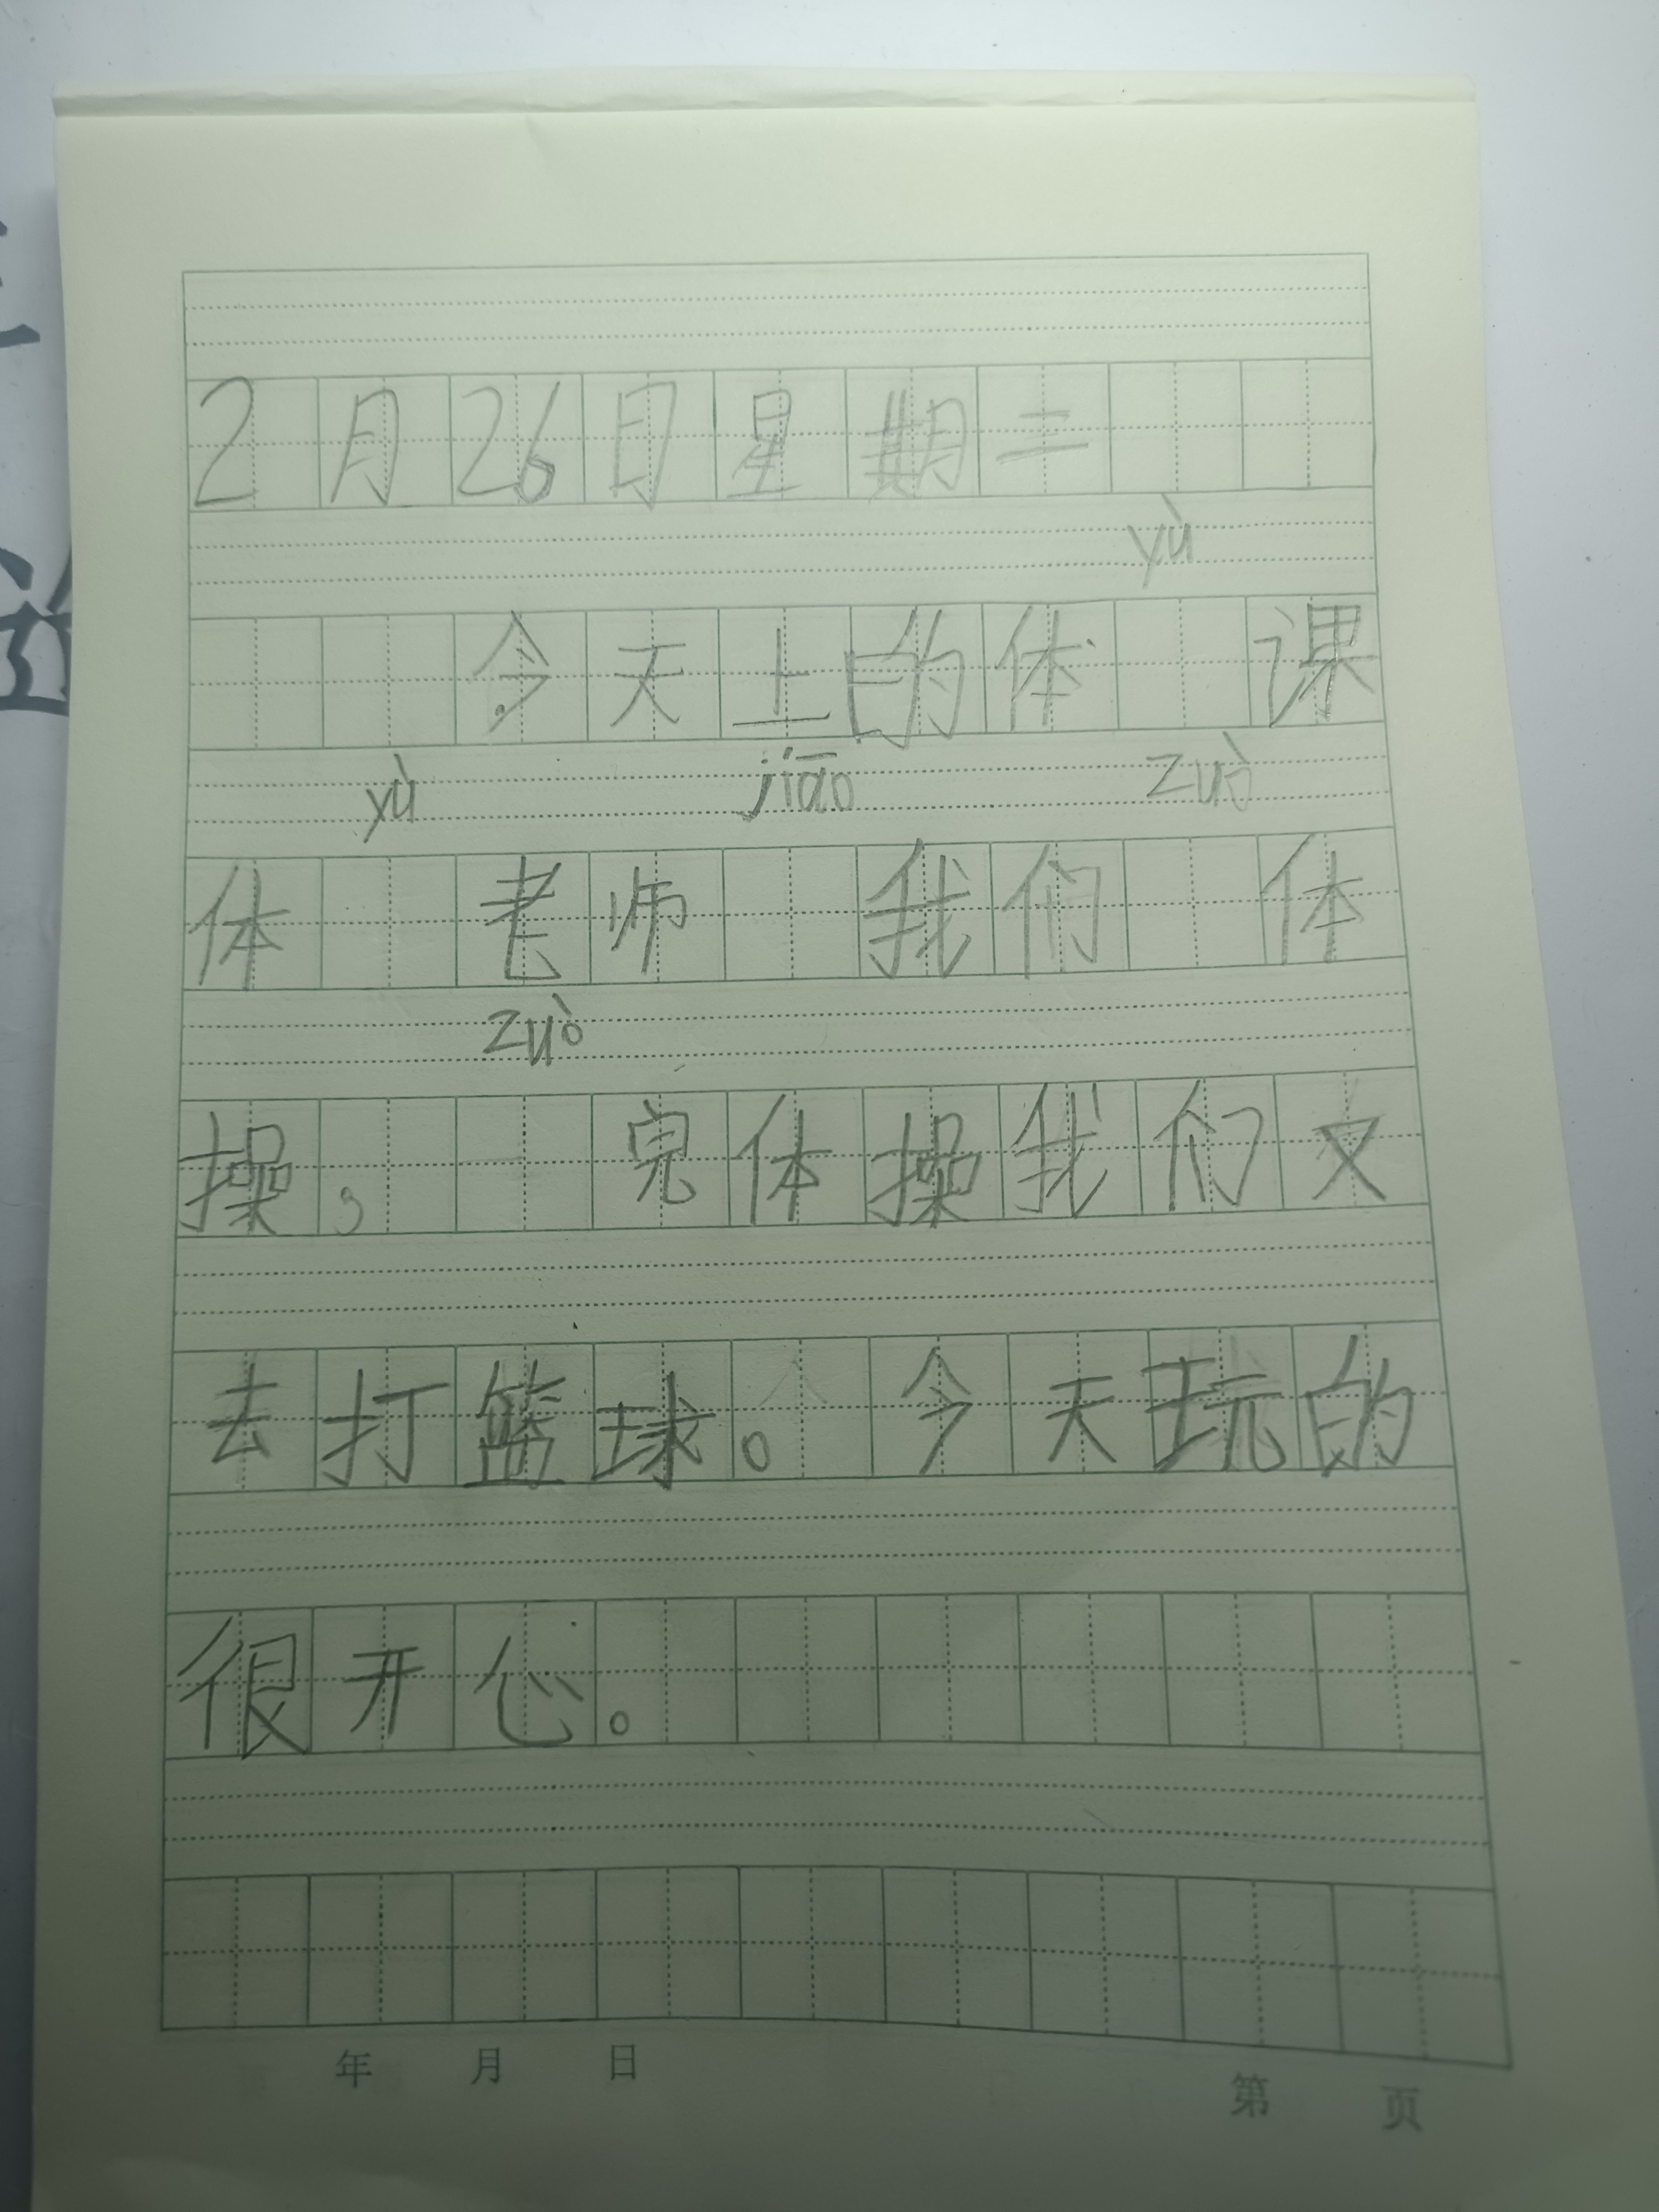 2月26日星期二
yù
今天上的体 课
yù jiāo zuò
体 老师 我们 体
zuò
操, 完体操我们又
去打篮球。今天玩的
很开心。
年 月 日 第 页